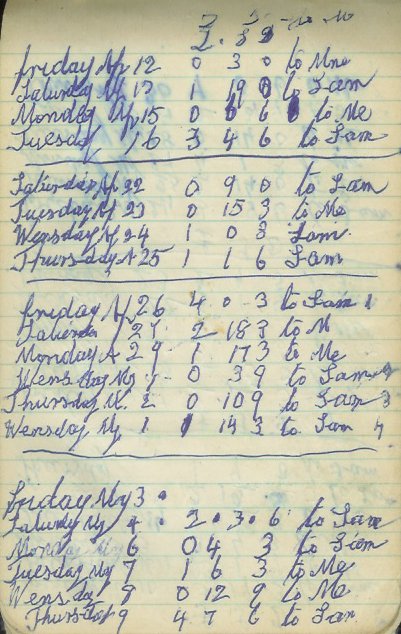 3 3 - to M
2 . 8 9
friday Ap 12 0 3 0 to Mne
Saturday Ap 13 1 19 0 to Sam
Monday Ap 15 0 0 6 to Me
Tuesday 16 3 4 6 to Sam
Saturday Ap 22 0 9 0 to Sam
Tuesday Ap 23 0 15 3 to Me
Wensday Ap 24 1 0 3 Sam
Thursday A 25 1 1 6 Sam
friday Ap 26 4 0 3 to Sam 1
Saturda 27 2 18 3 to M
Monday A 29 1 17 3 to Me
Wensday My 1 0 3 9 to Sam 2
Thursday M. 2 0 10 9 to Sam 3
Wensday My 1 1 14 3 to Sam 4
friday My 3 .
Saturday My 4 . 2 . 3 . 6 to Sam
Monday My 6 0 4 3 to Sam
Tuesday My 7 1 6 3 to Me
Wensday 8 0 12 9 to Me
Thursday 9 4 7 6 to Sam